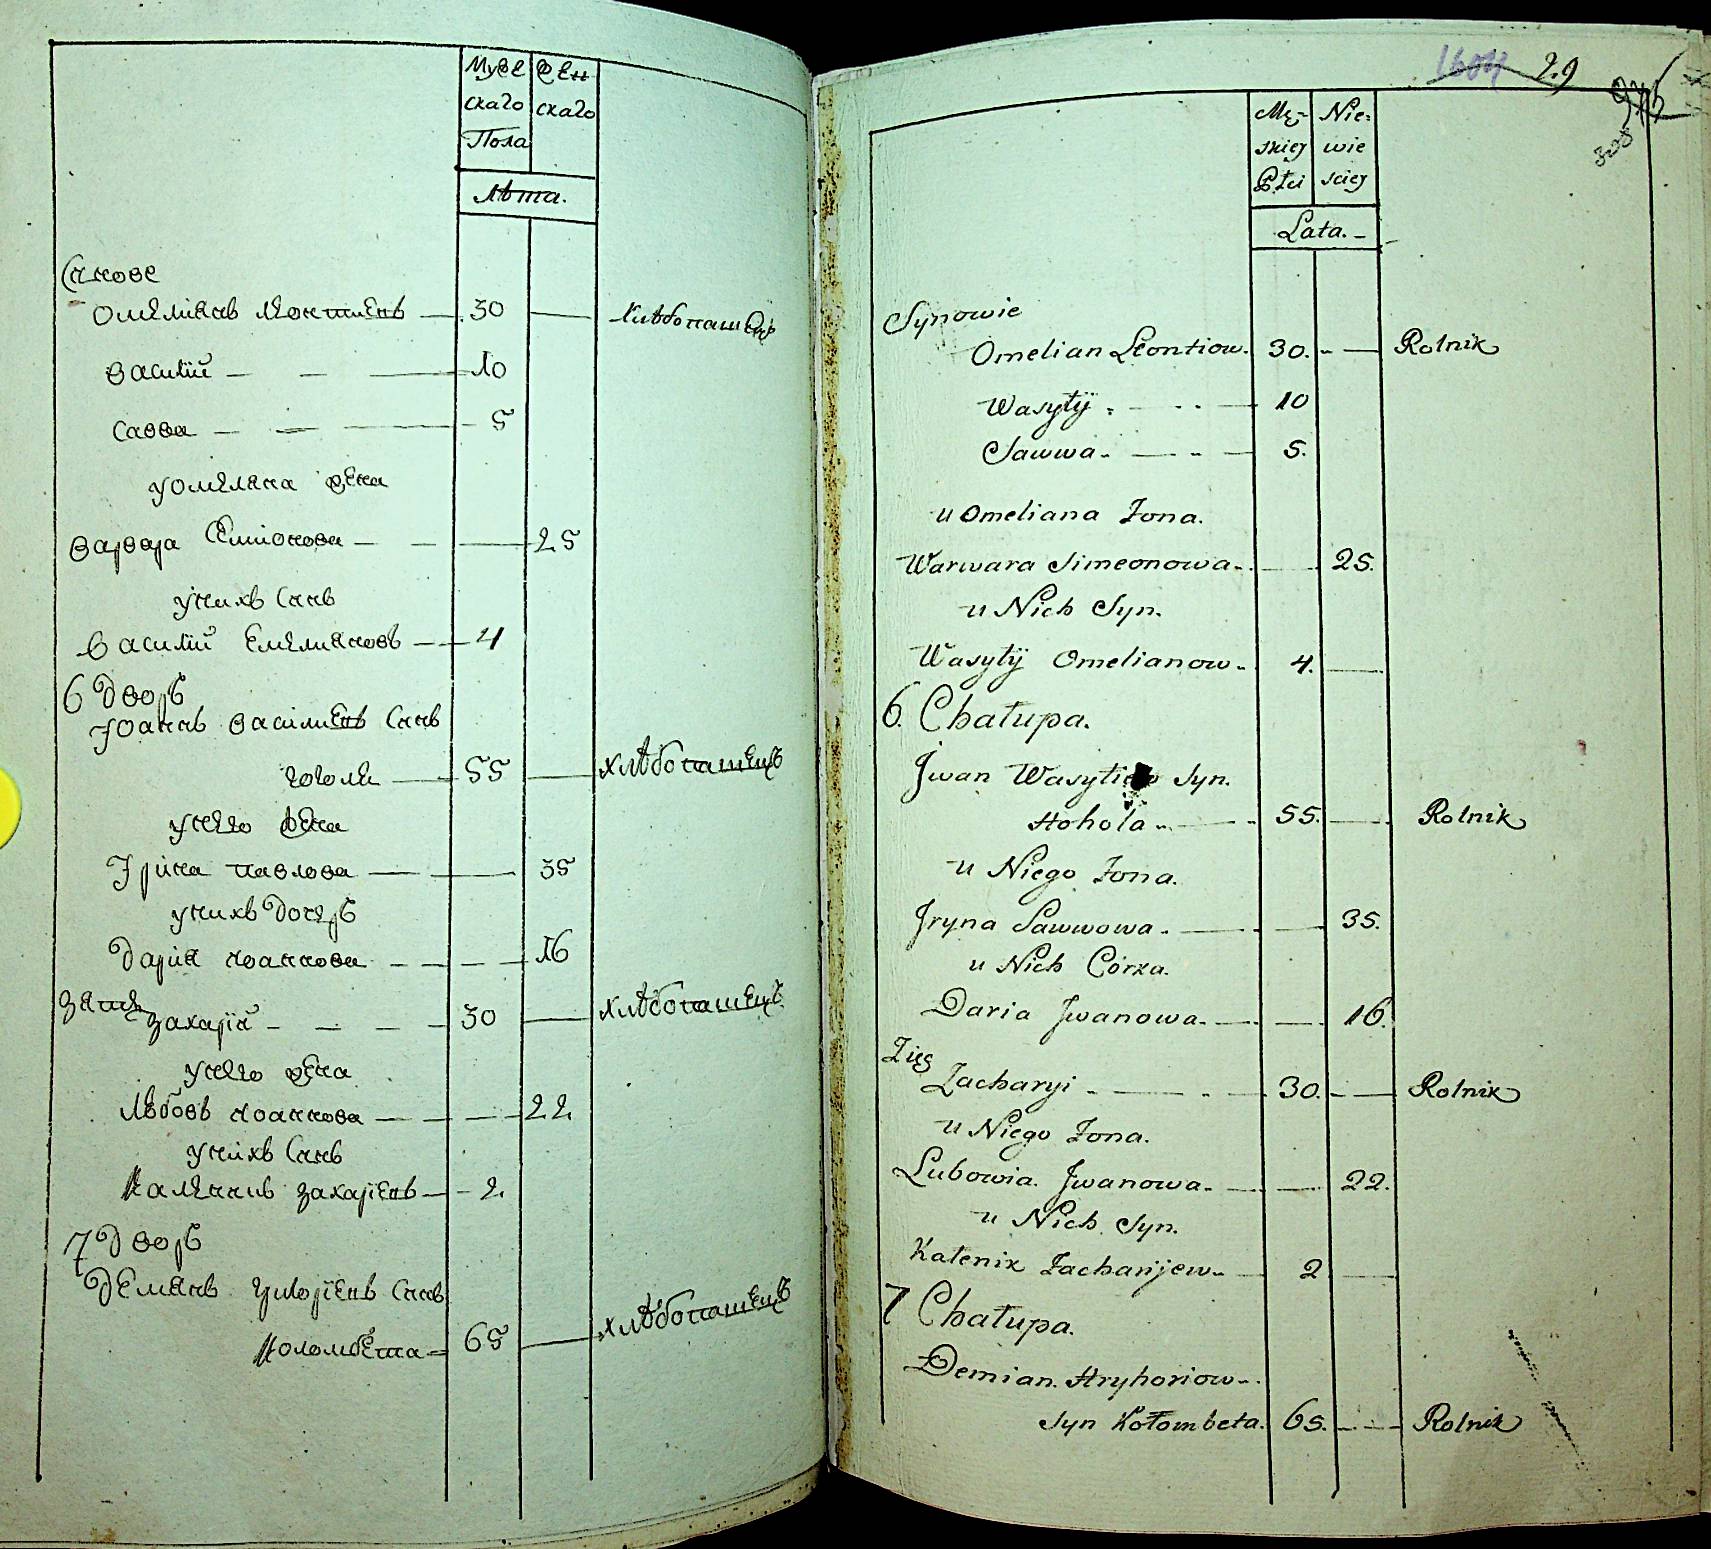 Муже Жен
скаго скаго
Пола
Лѣта.
Сынове
Омелианъ Леонтиевъ — 30 — хлѣбопашецъ
Василий — — — 10
Савва — — — 5
у Омеляна жена
Варвара Симіонова — — — 25
у нихъ Сынъ
Василий Емелиановъ — 4
6 Дворъ
Іоаннъ Василиевъ Сынъ
гоголь — 55 — хлѣбопашецъ
у него жена
Ірина павлова — — 35
у нихъ Дочерь
Дария Іоаннова — — — 16
Зять
Захарій — — — 30 — хлѣбопашецъ
у него жена
Любовь Іоаннова — — — 22.
у нихъ Сынъ
Каленикъ Захариевъ — 2.
7 Дворъ
Демянъ григориевъ Сынъ
Коломбета — 65 — хлѣбопашецъ
1604 29
Męz- Nie-
skiej wie
Płci sciej
Lata. -
Synowie
Omelian Leontiow. 30. — Rolnik
Wasylÿ — 10
Sawwa — 5.
u Omeliana Zona.
Warwara Simeonowa — 25.
u Nich Syn.
Wasylÿ Omelianow — 4. —
6. Chałupa.
Jwan Syn.
Hohola — 55. — Rolnik
u Niego Zona.
Jryna Sawwowa — — 35.
u Nich Córka.
Daria Jwanowa — — 16.
Zięć
Zacharyi — 30. — Rolnik
u Niego Zona.
Lubowia Jwanowa — — 22.
u Nich Syn.
Kalenik Zacharijew — 2 —
7 Chałupa.
Demian Hryhoriow
Syn Kołombeta. 65. — Rolnik